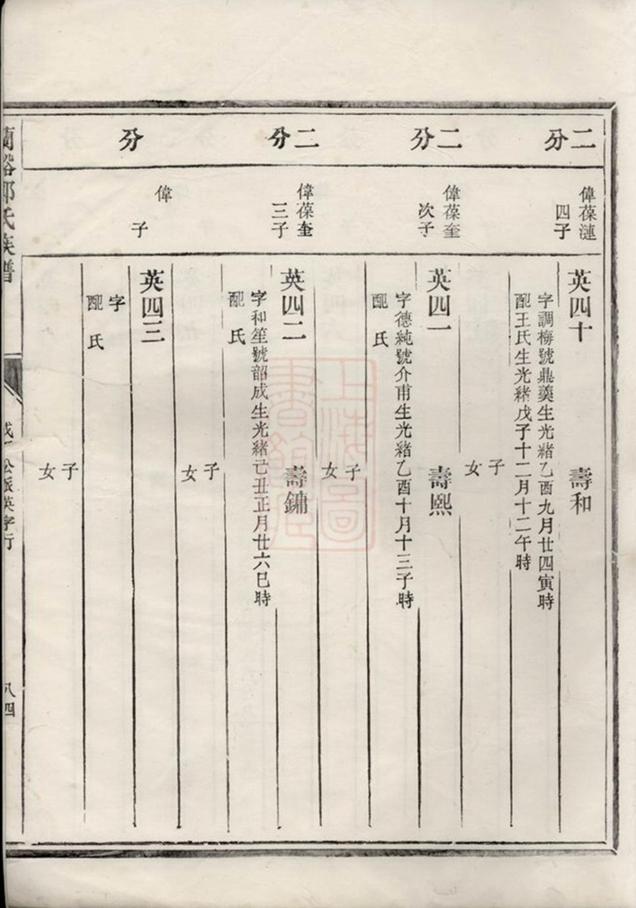 二分
偉葆漣
四子
英四十
壽和
字調梅號鼎羹生光緒乙酉九月廿四寅時
配王氏生光緒戊子十二月十二午時
子
女
二分
偉葆奎
次子
英四一
壽熙
字德純號介甫生光緒乙酉十月十三子時
配 氏
子
女
二分
偉葆奎
三子
英四二
壽鏞
字和笙號韶成生光緒己丑正月廿六巳時
配 氏
子
女
分
偉
子
英四三
字
配 氏
子
女
蘭谿 氏族譜
公派英字行
八四
上海圖
書館藏